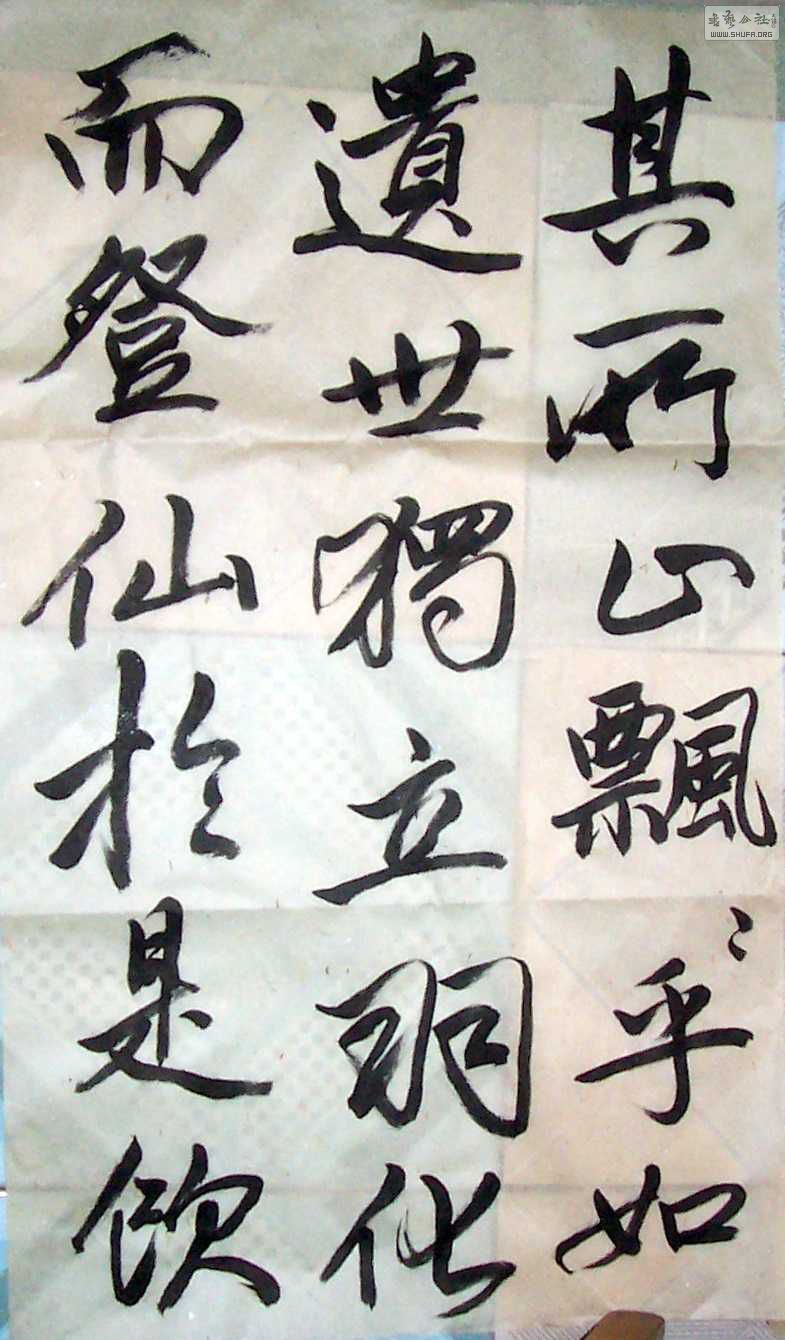 其所止飄〻乎如
遺世獨立羽化
而登仙於是飲
書藝公社
WWW.SHUFA.ORG